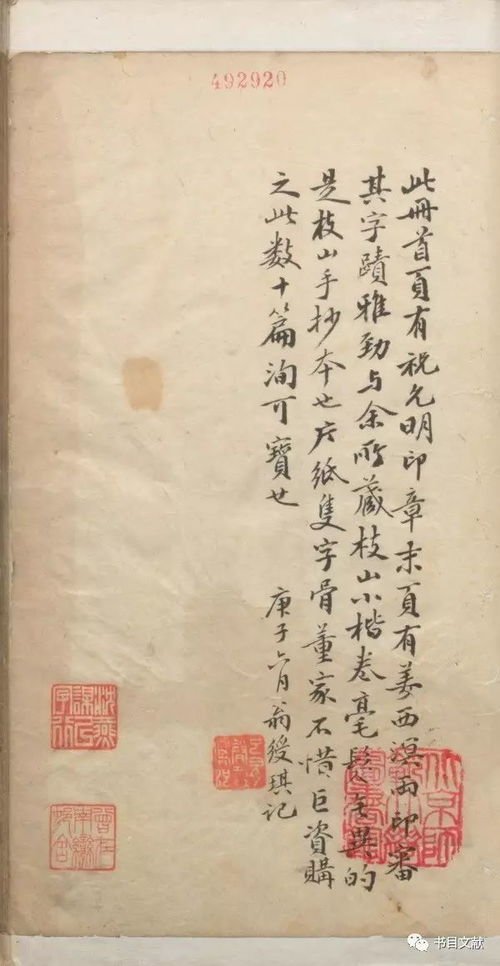 492920
此冊首頁有祝允明印章末頁有姜西溟兩印審
其字蹟雅勁与余所藏枝山小楷卷毫髮無異的
是枝山手抄本也片紙隻字骨董家不惜巨資購
之此数十篇洵可寶也
庚子六月翁綬琪记
书目文献